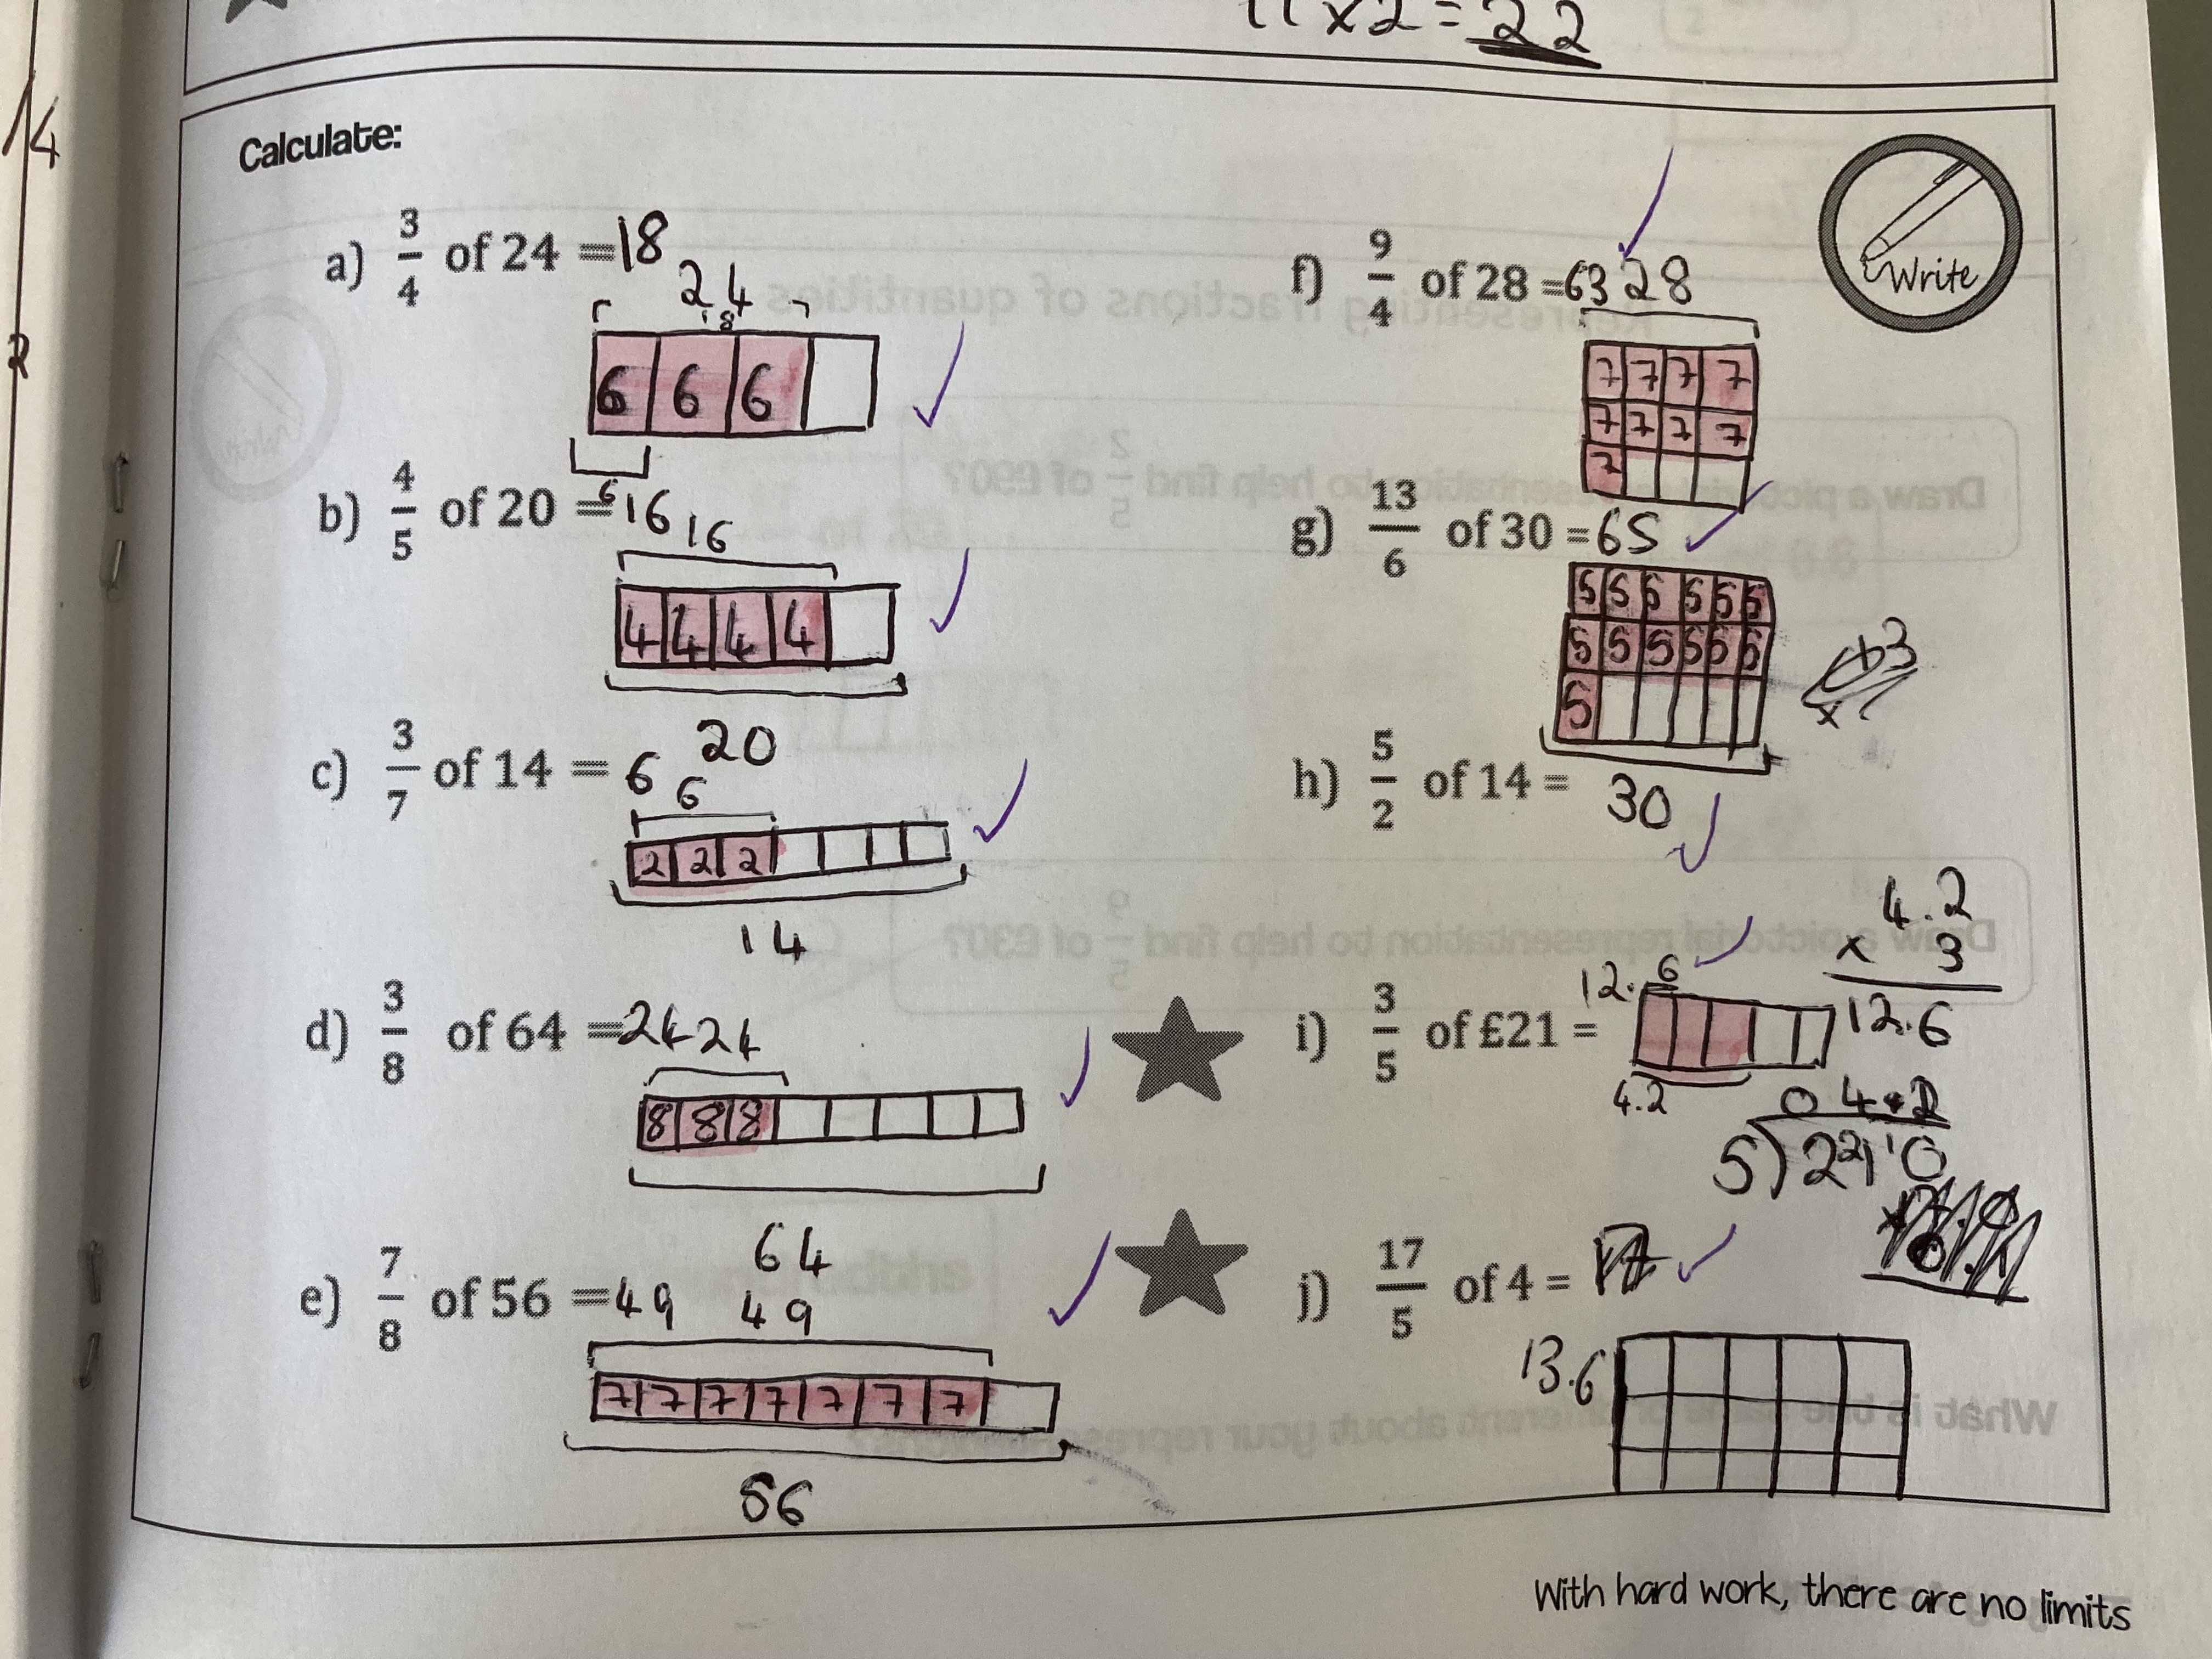 11 x 2 = 22
Calculate:
a) 3/4 of 24 = 18
24
18
6 6 6
6
b) 4/5 of 20 = 16
16
4 4 4 4
20
c) 3/7 of 14 = 6
6
2 2 2
14
d) 3/8 of 64 = 24
24
8 8 8
64
e) 7/8 of 56 = 49
49
7 7 7 7 7 7 7
56
f) 9/4 of 28 = 63
28
7 7 7 7
7 7 7 7
7
Write
g) 13/6 of 30 = 65
5 5 5 5 5 5
5 5 5 5 5 5
5
30
h) 5/2 of 14 =
i) 3/5 of £21 =
12.6
4.2
4.2
x 3
12.6
04.2
5)22110
j) 17/5 of 4 =
13.6
With hard work, there are no limits
14
2